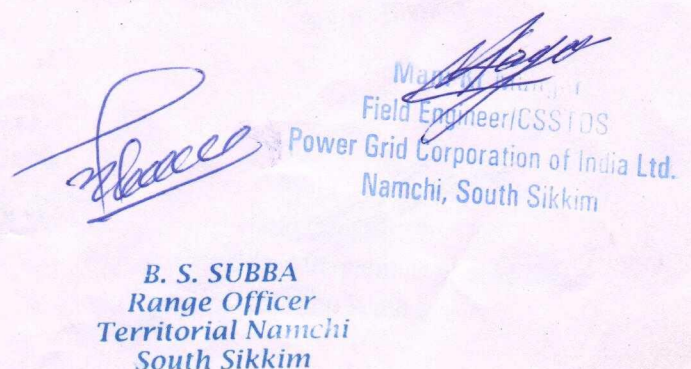 Field Engineer/CSSTDS
Power Grid Corporation of India Ltd.
Namchi, South Sikkim
B. S. SUBBA
Range Officer
Territorial Namchi
South Sikkim